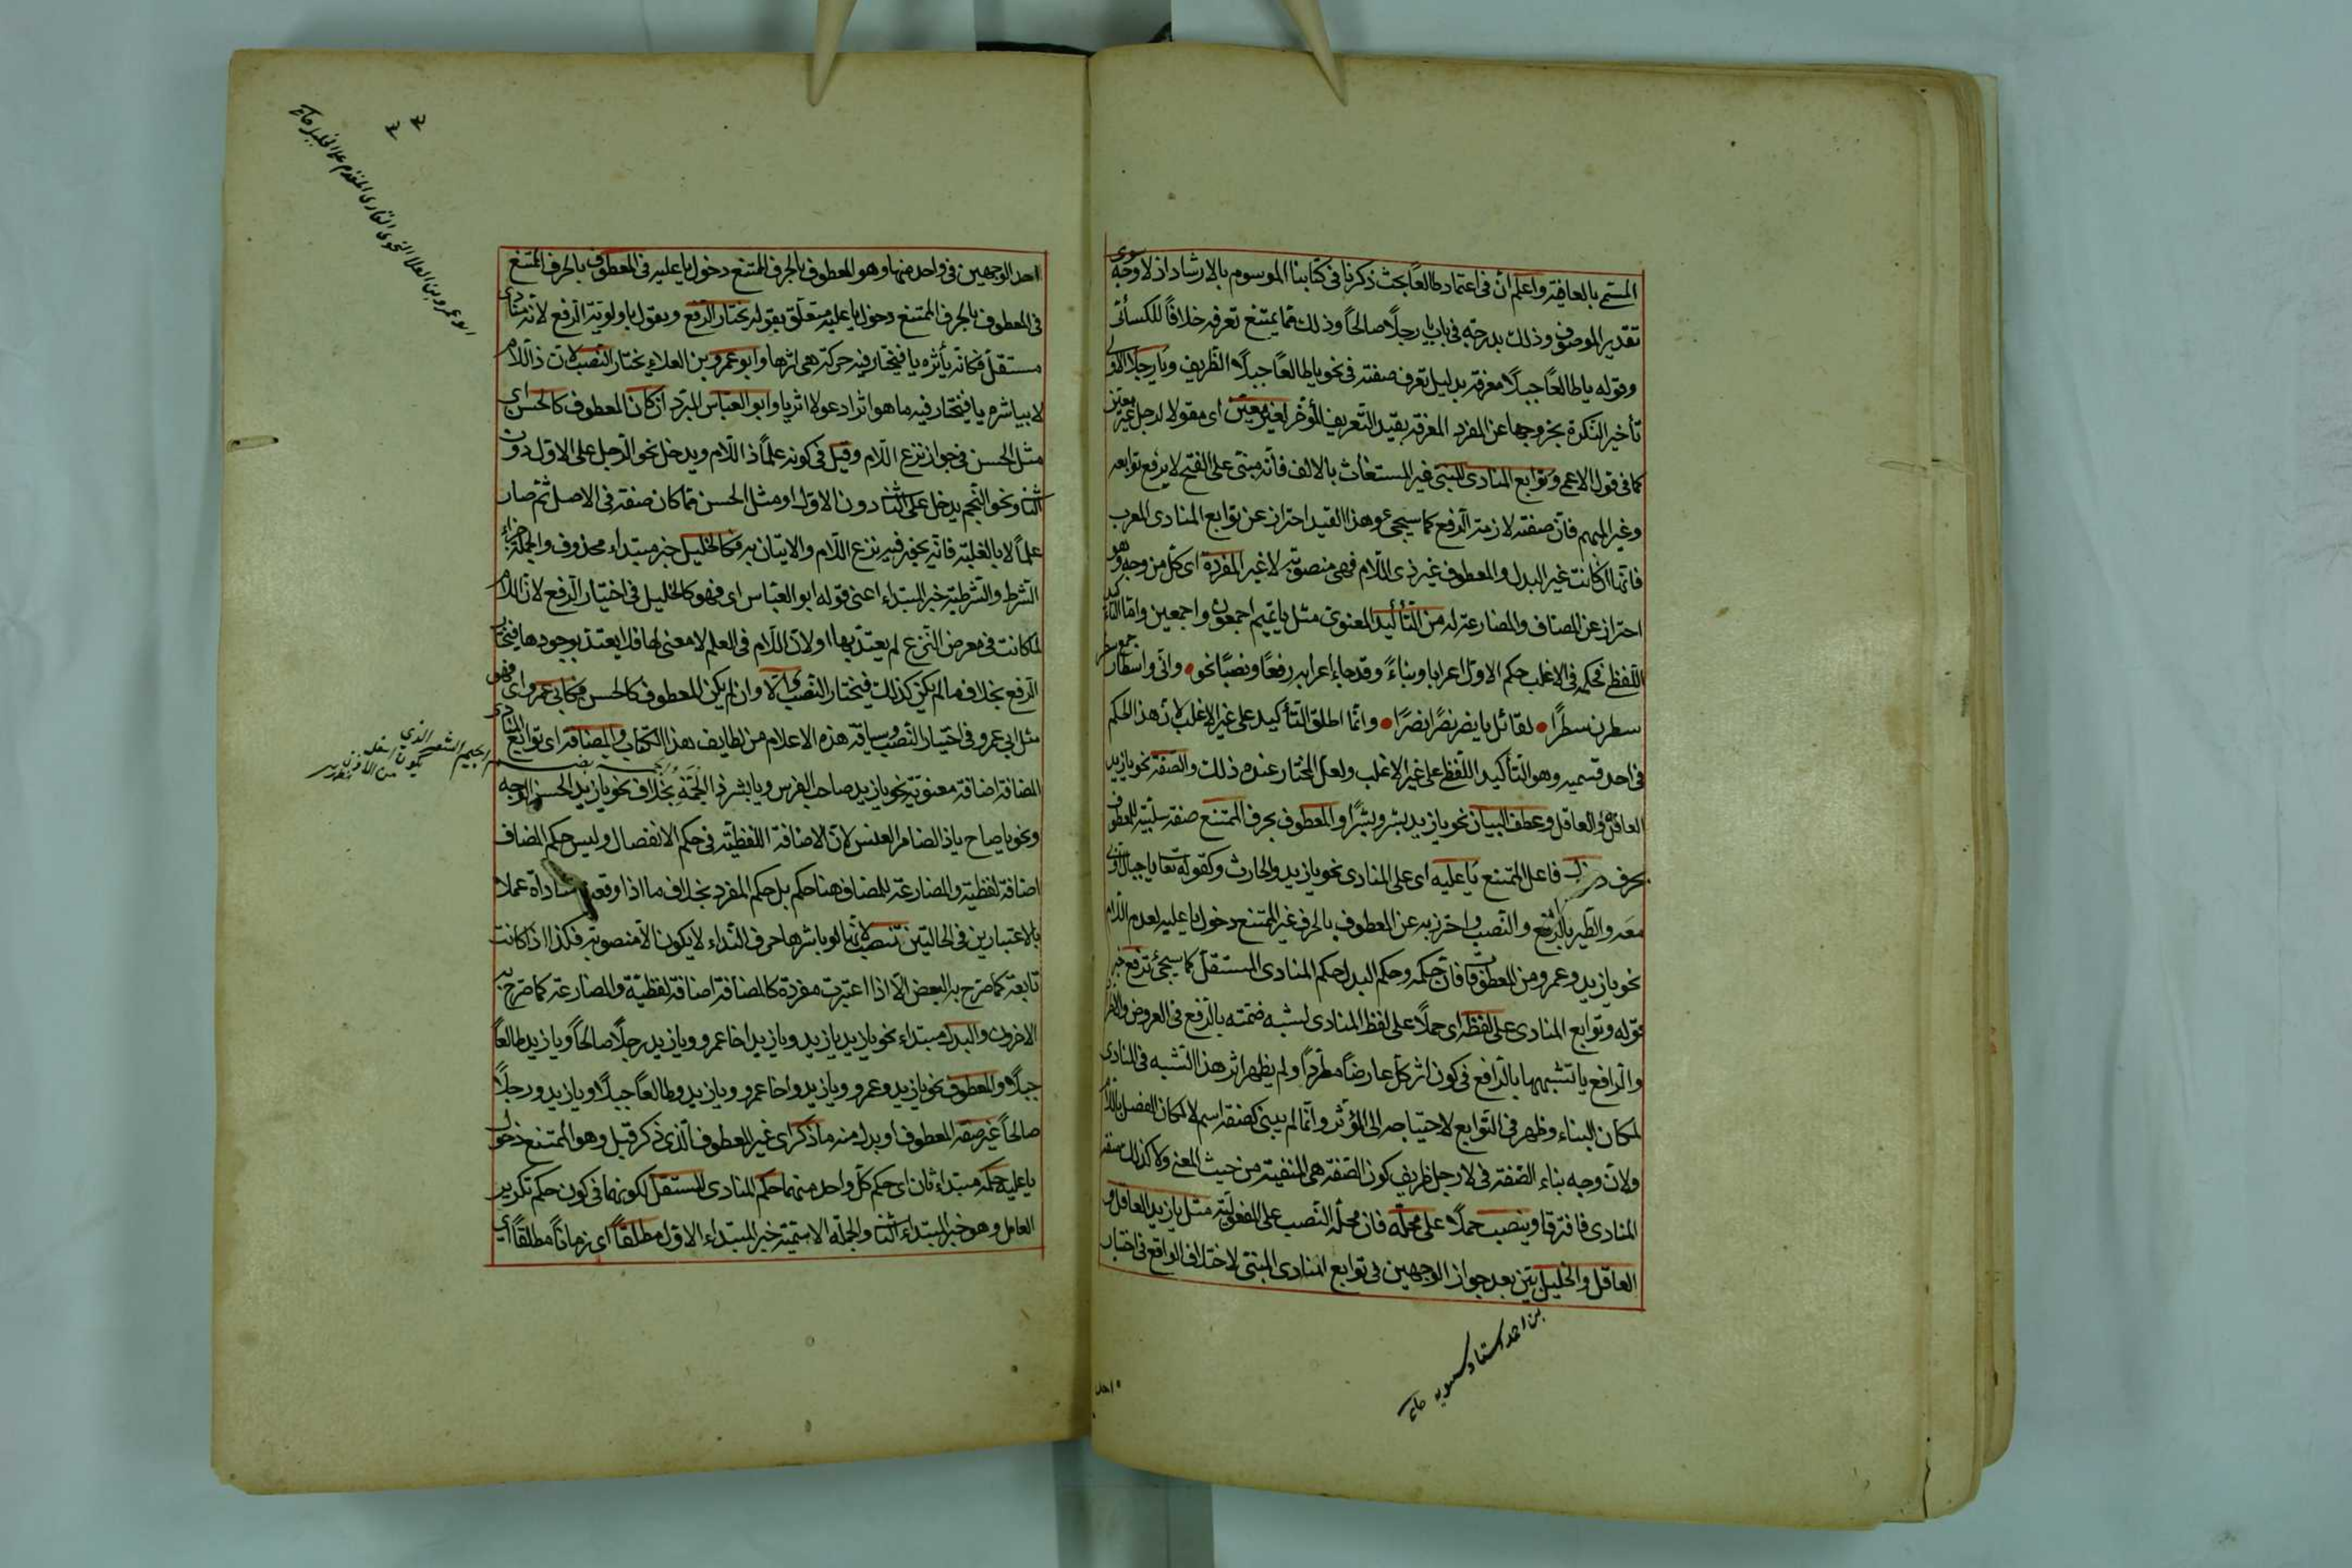 المسمى بالعافية واعلم ان فى اعتماد طالعا بحث ذكرنا فى كتابنا الموسوم بالارشاد اذ لا وجه سوى
تقدير الموصوف وذلك بدرجته فى باب يا رجلا صالحا وذلك مما يمتنع تعرفه خلافا للكسائى
وقوله يا طالعا جبلا معرفة بدليل تعرف صفته فى نحو يا طالعا جبلا الظريف ويا رجلا الاولى
تأخير النكرة بخروجها عن المفرد المعرفة بقيد التعريف المؤخر لغير معين اى مقولا لرجل غير معين
كما فى قول الاعمى وتوابع المنادى المبنى غير المستغاث بالالف فانه مبنى على الفتح لا يرفع توابعه
وغير المبهم فان صفته لازمة الرفع كما سيجئ وهذا القيد احتراز عن توابع المنادى المعرب
فانها اذا كانت غير البدل والمعطوف غير ذى اللام فهى منصوبة لا غير المفردة اى كل من وجه وهو
احتراز عن المضاف والمضارعة له من التأكيد المعنوى مثل يا تميم اجمعون واجمعين واما التأكيد
اللفظى فحكمه فى الاغلب حكم الاول اعرابا وبناء وقد جاء اعرابه رفعا ونصبا نحو وانى واسطار
سطرن سطرا لقائل يا نصر نصرا نصرا وانما اطلق التأكيد على غير الاغلب لان هذا الحكم
فى احد قسميه وهو التأكيد اللفظى على غير الاغلب ولعل المختار عنده ذلك والصفة نحو يا زيد
العاقل والعاقل وعطف البيان نحو يا زيد بشر وبشرا والمعطوف بحرف الممتنع صفة سببية للمعطوف
بحرف فاعل الممتنع يا عليه اى على المنادى نحو يا زيد والحارث وكقوله تعا يا جبال اوبى
معه والطير بالرفع والنصب واحترز به عن المعطوف بالحرف غير الممتنع دخول يا عليه لعدم اللام
نحو يا زيد وعمرو ومن المعطوف فان حكمه وحكم البدل حكم المنادى المستقل كما سيجئ ترفع خبر
قوله وتوابع المنادى على لفظه اى حملا على لفظ المنادى لشبه ضمته بالرفع فى العروض
والرافع يا تشبيهها بالرافع فى كون اثر كل عارضا مطردا ولم يظهر اثر هذا التشبه فى المنادى
لمكان البناء وظهر فى التوابع لاحتياجه الى المؤثر وانما لم يبنى كصفة اسم لا لمكان الفصل باللام
ولان وجه بناء الصفة فى لا رجل ظريف كون الصفة هى المنفية من حيث المعنى ولا كذلك صفة
المنادى فافترقا وينصب حملا على محله فان محله النصب على المفعولية مثل يا زيد العاقل و
العاقل والخليل بين بعد جواز الوجهين فى توابع المنادى المبنى لاختلاف الواقع فى اختيار
بن احمد استاد سيبويه
احد
احد الوجهين فى واحد منها وهو المعطوف بالحرف الممتنع دخول يا عليه فى المعطوف بالحرف الممتنع
فى المعطوف بالحرف الممتنع دخول يا عليه متعلق بقوله يختار الرفع ويقول باولوية الرفع لانه منادى
مستقل فكانه يأثره يا فيختار فيه حركة هى اثرها وابو عمرو بن العلاء يختار النصب لان ذا اللام
لا يباشره يا فيختار فيه ما هو اثر ادعو لا اثر يا وابو العباس المبرد ان كان المعطوف كالحسن اى
مثل الحسن فى جواز نزع اللام وقيل فى كونه علما ذا اللام ويدخل نحو الرجل على الاول دون
الثنا ونحو النجم يدخل على الثنا دون الاول او مثل الحسن مما كان صفة فى الاصل ثم صار
علما لا بالغلبة فانه يجوز فيه نزع اللام والاتيان به فكالخليل خبر مبتداء محذوف والجملة جزاء
الشرط والشرطية خبر المبتداء اعنى قوله ابو العباس اى فهو كالخليل فى اختيار الرفع لان اللام
لما كانت فى معرض النزع لم يعتد بها اولا لان اللام فى العلم لا معنى لها فلا يعتد بوجودها فيختار
الرفع بخلاف ما لم يكن كذلك فيختار النصب والا وان لم يكن المعطوف كالحسن فكابى عمرو اى فهو
مثل ابى عمرو فى اختيار النصب وسياقة هذه الاعلام من لطايف هذا الكتاب والمضافة اى توابع المنادى
المضافة اضافة معنوية نحو يا زيد صاحب الفرس ويا بشر ذا الجمة بخلاف نحو يا زيد الحسن الوجه
ونحو يا صاح يا ذا الضامر العنس لان الاضافة اللفظية فى حكم الانفصال وليس حكم المضاف
اضافة لفظية والمضارعة للمضاف هنا حكم بل حكم المفرد بخلاف ما اذا وقعه مناداة عملا
بالاعتبارين فى الحالتين تنصب لانها لو باشرها حرف النداء لا يكون الا منصوبة فكذا اذا كانت
تابعة كما صرح به البعض الا اذا اعتبرت مفردة كالمضافة اضافة لفظية والمضارعة كما صرح به
الاخرون والبدل مبتداء نحو يا زيد يا زيد ويا زيد اخا عمرو ويا زيد رجلا صالحا ويا زيد طالعا
جبلا والمعطوف نحو يا زيد وعمرو ويا زيد واخا عمرو ويا زيد وطالعا جبلا ويا زيد ورجلا
صالحا غير صفة المعطوف او بدل منه ما ذكر اى غير المعطوف الذى ذكر قبل وهو الممتنع دخول
يا عليه حكمه مبتداء ثان اى حكم كل واحد منهما حكم المنادى المستقل لكونهما فى كون حكم تكرير
العامل وهو خبر المبتداء الثنا والجملة الاسمية خبر المبتداء الاول مطلقا اى زمانا مطلقا اى
ابو عمرو بن العلا النحوى القارى المقدم على الخليل